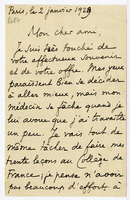 Paris, le 2 janvier 1928
Mon cher ami,
Je suis très touché de
votre affectueux souvenir
et de votre offre. Mes yeux
paraissent bien se décider
à aller mieux, mais mon
médecin se fâche quand je
lui avoue que j'ai travaillé
un peu. Je vais tout de
même tâcher de faire mes
trente leçons au Collège de
France; je pense n'avoir
pas beaucoup d'effort à